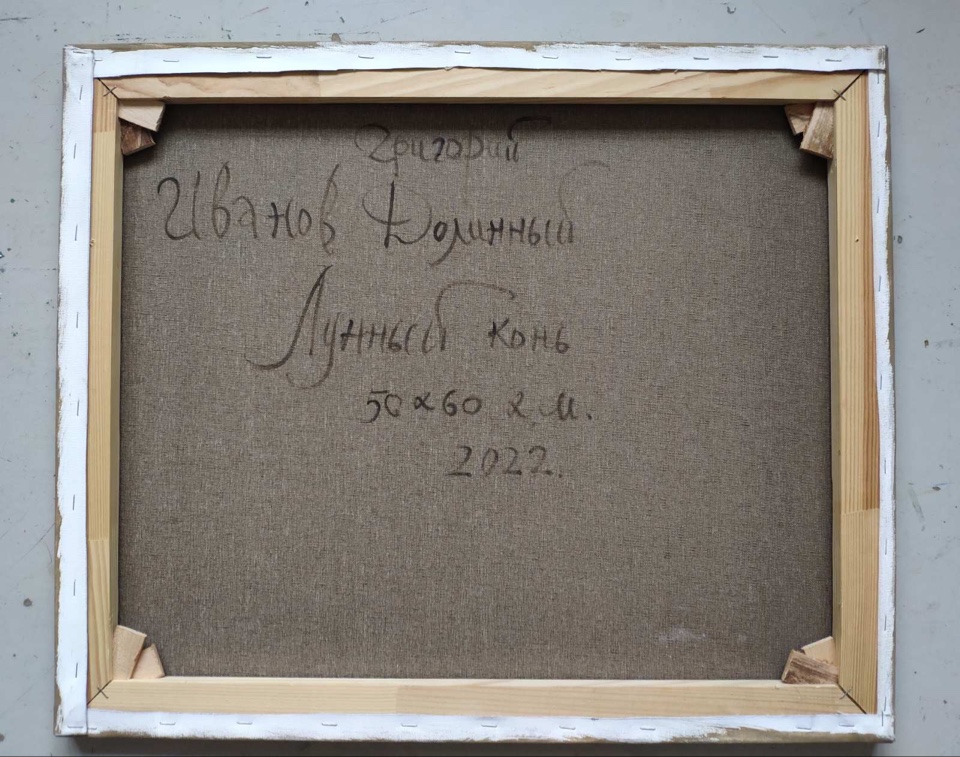 Григорий
Иванов Долинный
Лунный конь
50х60 х.м.
2022.